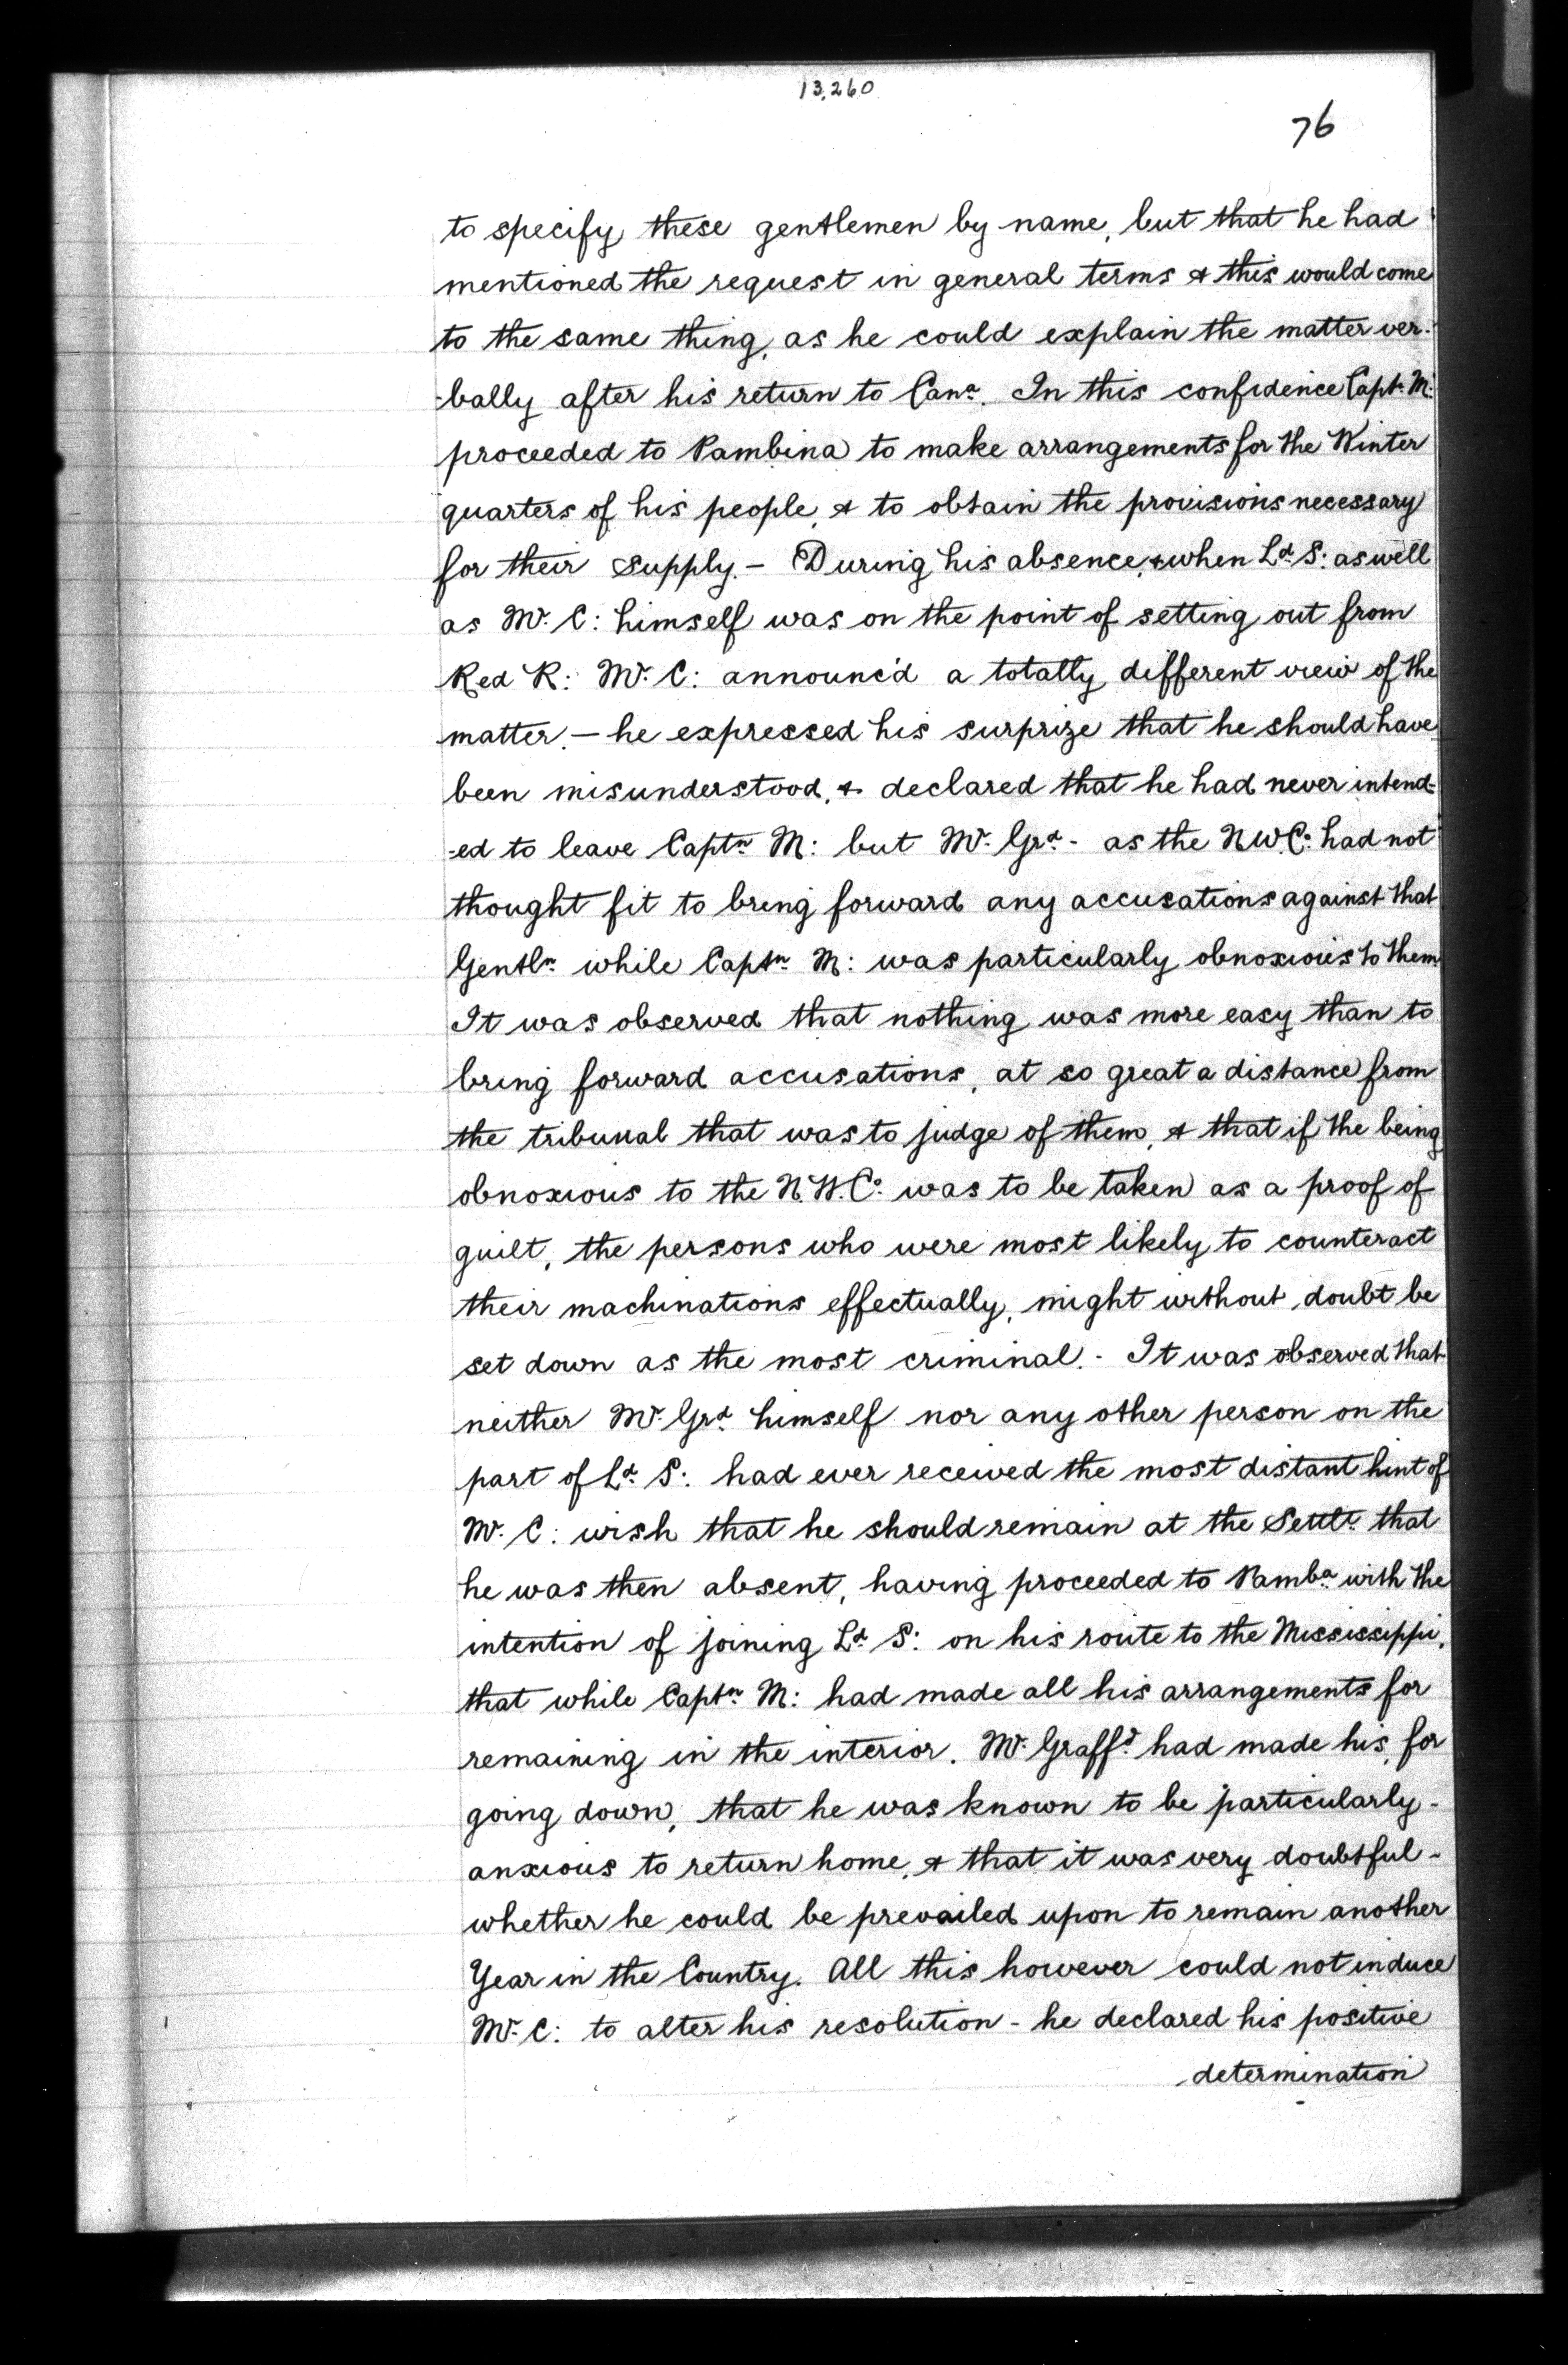 13,260
76
to specify these gentlemen by name, but that he had
mentioned the request in general terms & this would come
to the same thing, as he could explain the matter ver-
-bally after his return to Canᵃ. In this confidence Captⁿ M:
proceeded to Pambina to make arrangements for the Winter
quarters of his people, & to obtain the provisions necessary
for their supply. – During his absence, & when Lᵈ S: as well
as Mʳ C: himself was on the point of setting out from
Red R: Mʳ C: announc'd a totally different view of the
matter. – he expressed his surprize that he should have
been misunderstood, & declared that he had never intend-
-ed to leave Captⁿ M: but Mʳ Grᵈ - as the N W Cᵒ had not
thought fit to bring forward any accusations against that
Gentlⁿ while Captⁿ M: was particularly obnoxious to them
It was observed that nothing was more easy than to
bring forward accusations, at so great a distance from
the tribunal that was to judge of them, & that if the being
obnoxious to the N.W.Cᵒ was to be taken as a proof of
guilt, the persons who were most likely to counteract
their machinations effectually, might without doubt be
set down as the most criminal. - It was observed that
neither Mʳ Grᵈ himself nor any other person on the
part of Lᵈ S: had ever received the most distant hint of
Mʳ C: wish that he should remain at the Settlᵗ that
he was then absent, having proceeded to Pambᵃ with the
intention of joining Lᵈ S: on his route to the Mississippi,
that while Captⁿ M: had made all his arrangements for
remaining in the interior. Mʳ Graffᵈ had made his, for
going down, that he was known to be particularly -
anxious to return home, & that it was very doubtful -
whether he could be prevailed upon to remain another
Year in the Country. All this however could not induce
Mʳ C: to alter his resolution - he declared his positive
determination